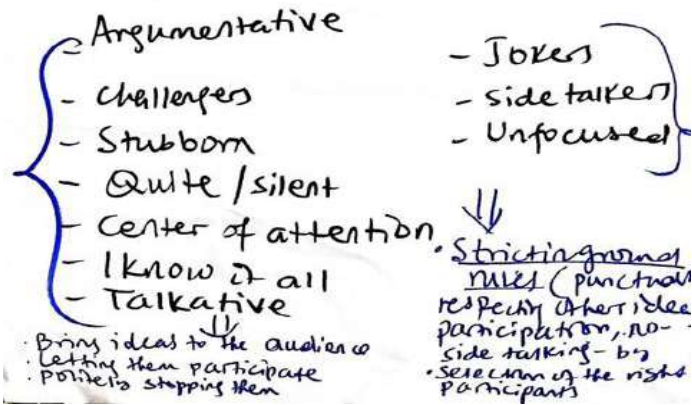 - Argumentative
- Challengers
- Stubborn
- Quite / silent
- Center of attention
- I know it all
- Talkative
⇓
· Bring ideas to the audience
· Letting them participate
· politely stopping them
- Jokers
- side talkers
- Unfocused
⇓
· Strict in ground
rules (punctual
respecting other idea
participation, no-
side talking - by
· selection of the right
participants